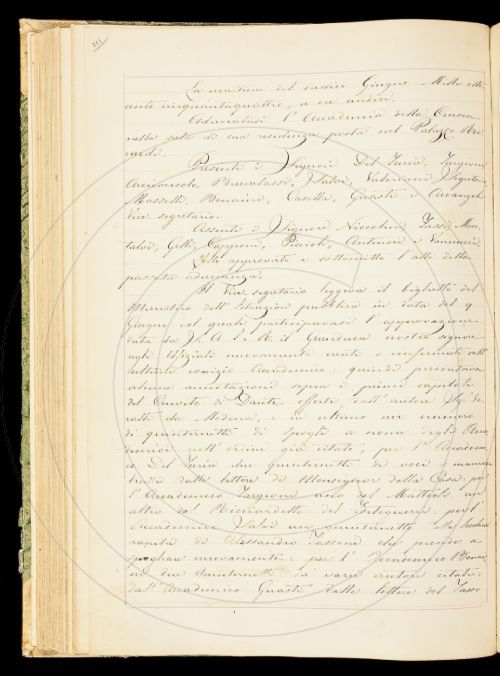 La mattina del tredici Giugno Mille otto
cento cinquantaquattro, a ore undici.
Adunatasi l'Accademia della Crusca
nella sala di sua residenza posta nel Palazzo Ric
cardi.
Presenti i Signori Del Furia, Targioni
Arciconsolo, Brucalassi, Salvi, Valeriani, Segretario,
Masselli, Bonaini, Casella, Guasti e Arcangeli
Vice segretario.
Assenti i Signori Niccolini, Tassi, Mon
talvi, Gelli, Capponi, Puccioti, Antinori e Vannucci,
Fu approvato e sottoscritto l'atto della
passata Adunanza.
Il Vice segretario leggeva il biglietto del
Ministero dell'Istruzion pubblica in data del 9
Giugno col quale participavasi l'approvazione
data da S. A. I. e R. il Granduca nostro signore
agli Ufiziali nuovamente eletti o confermati nell'
ultimo comizio Accademico: quindi presentava
alcune annotazioni sopra i primi capitoli
del Convito di Dante offerte dall'autore
da Modena, e in ultimo un numero
di quadernetti di spogli a nome degli Acca
demici nell'ordine già citato, per l'Accademi
co Del Furia due quinternetti di voci e maniere
tratte dalle lettere di Monsignor della Casa, per
l'Accademico Targioni uno del Mattioli, un
altro del Ricciardetto del Forteguerri, per l'
Accademico Salvi un quinternetto della Secchia
rapita di Alessandro Tassoni che prende a
spogliare nuovamente: per l'Accademico Bonai
ni due Quinternetti da varii autori citati:
dall'Accademico Guasti dalle lettere del Tasso